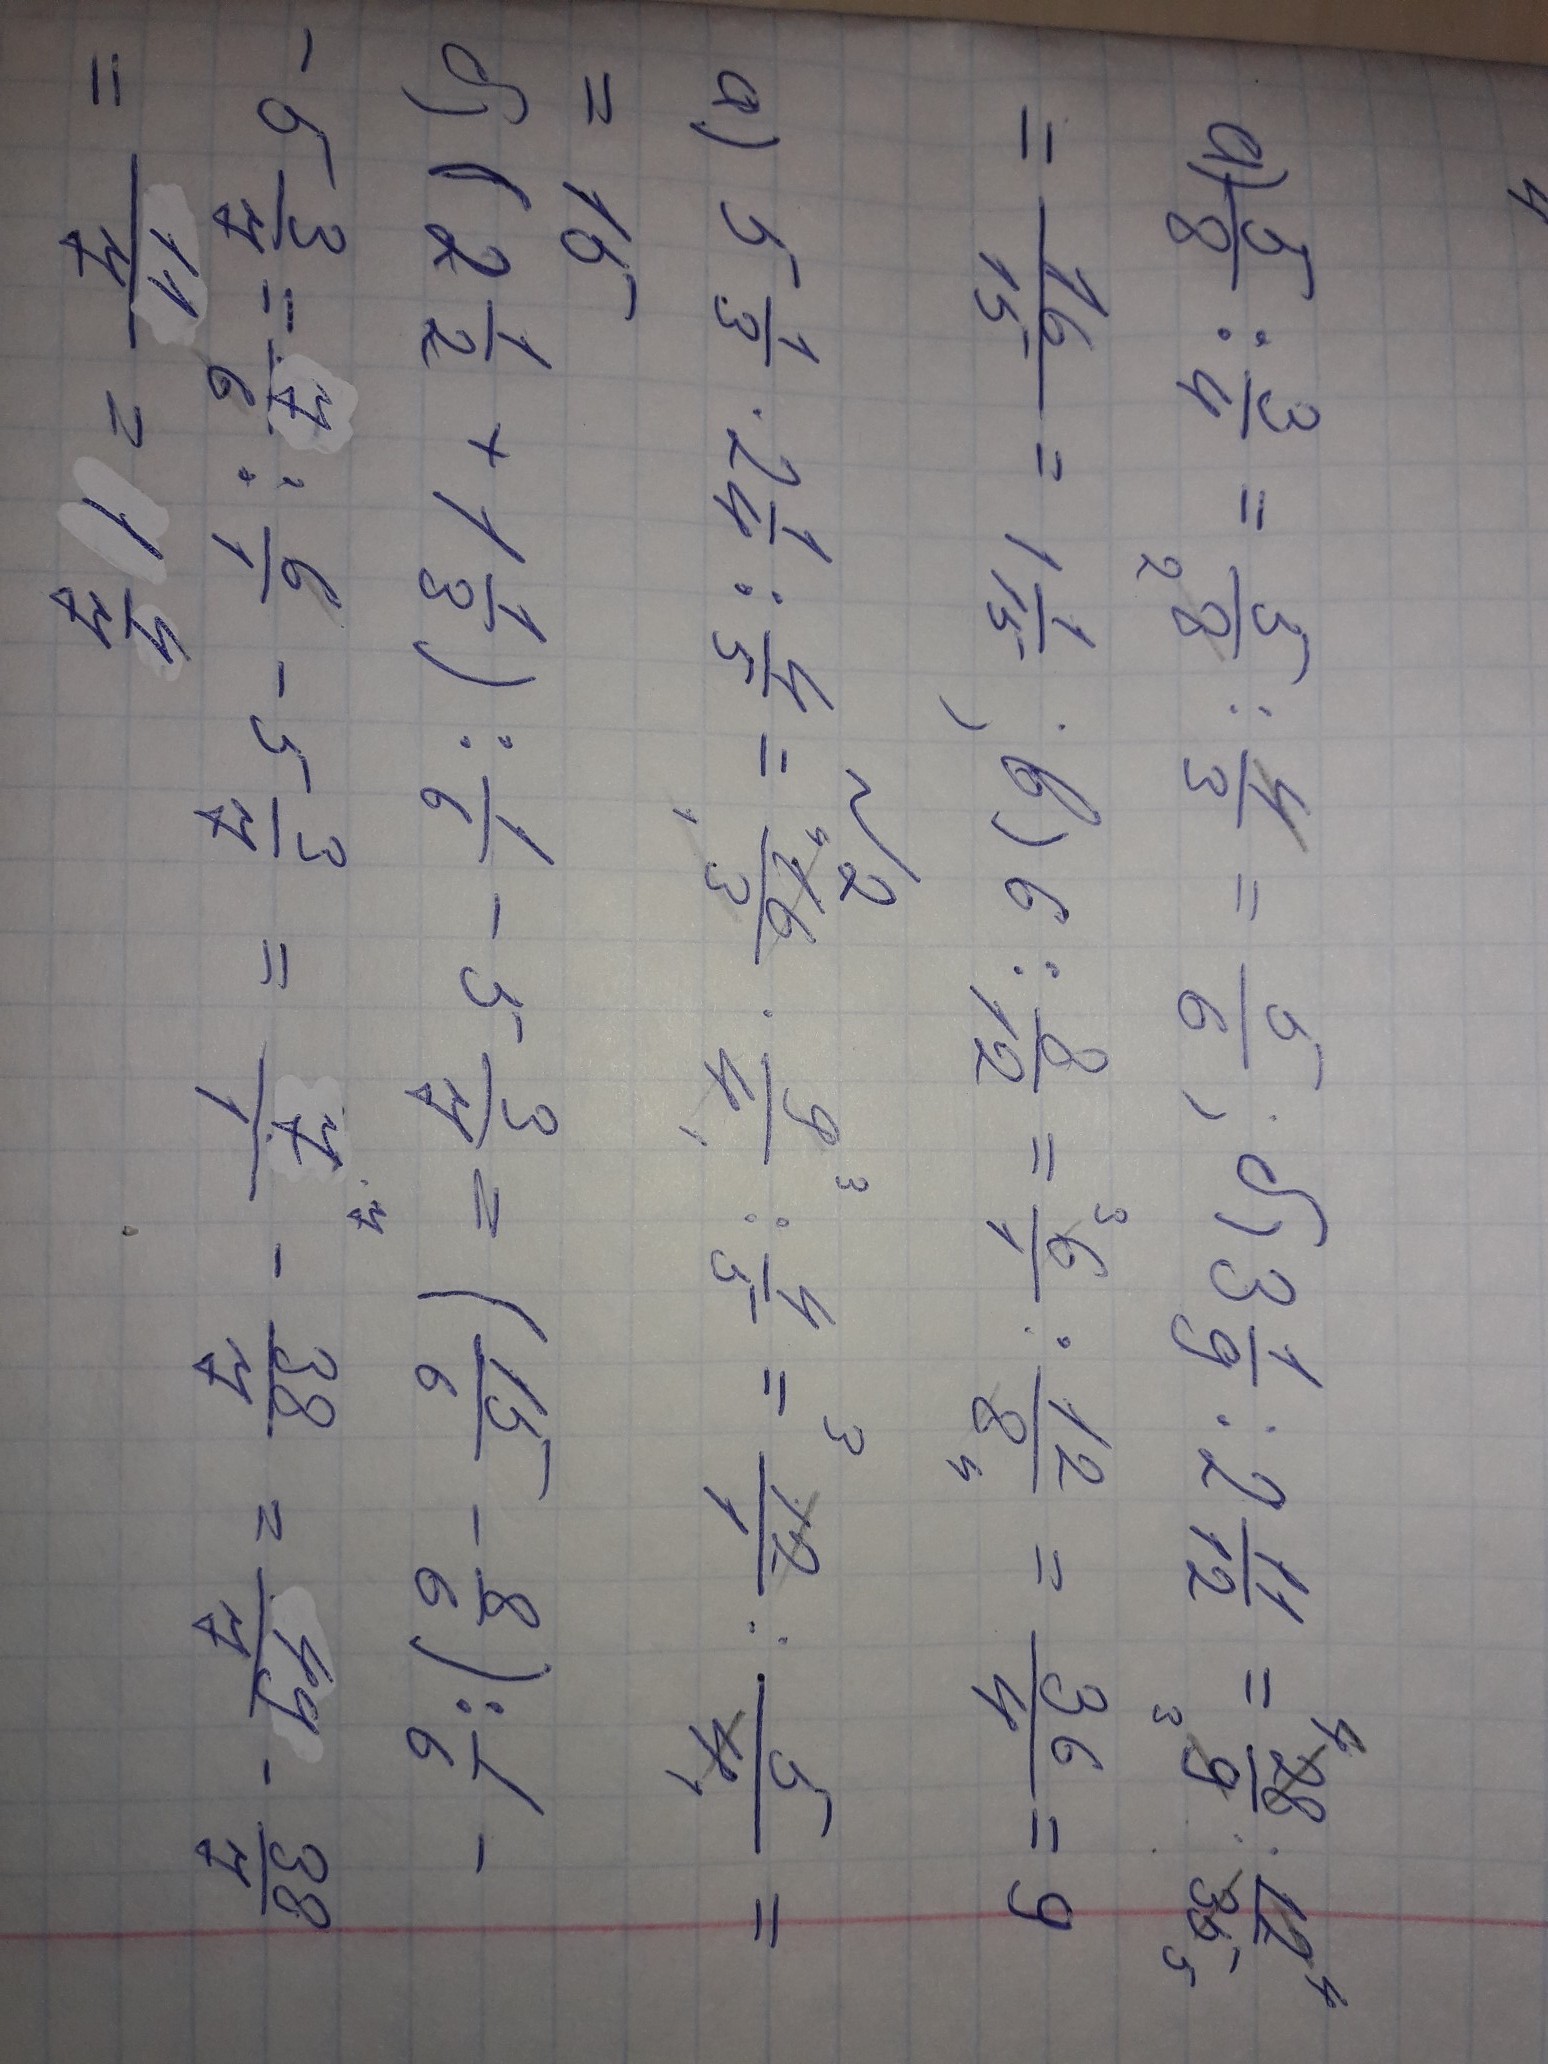 4
а) 5/8 : 3/4 = 5/8 · 4/3 = 5/6 ; б) 3 1/9 : 2 11/12 = 28/9 · 12/35
= 16/15 = 1 1/15 ; в) 6 : 8/12 = 6/1 · 12/8 = 36/4 = 9
√2
а) 5 1/3 · 2 1/4 : 4/5 = 16/3 · 9/4 : 4/5 = 12/1 · 5/4 =
= 15
б) (2 1/2 + 1 1/3) : 1/6 - 5 3/7 = (15/6 - 8/6) : 1/6 -
- 5 3/7 = 7/6 : 6/1 - 5 3/7 = 7/1 - 38/7 = 49/7 - 38/7
= 11/7 = 1 4/7